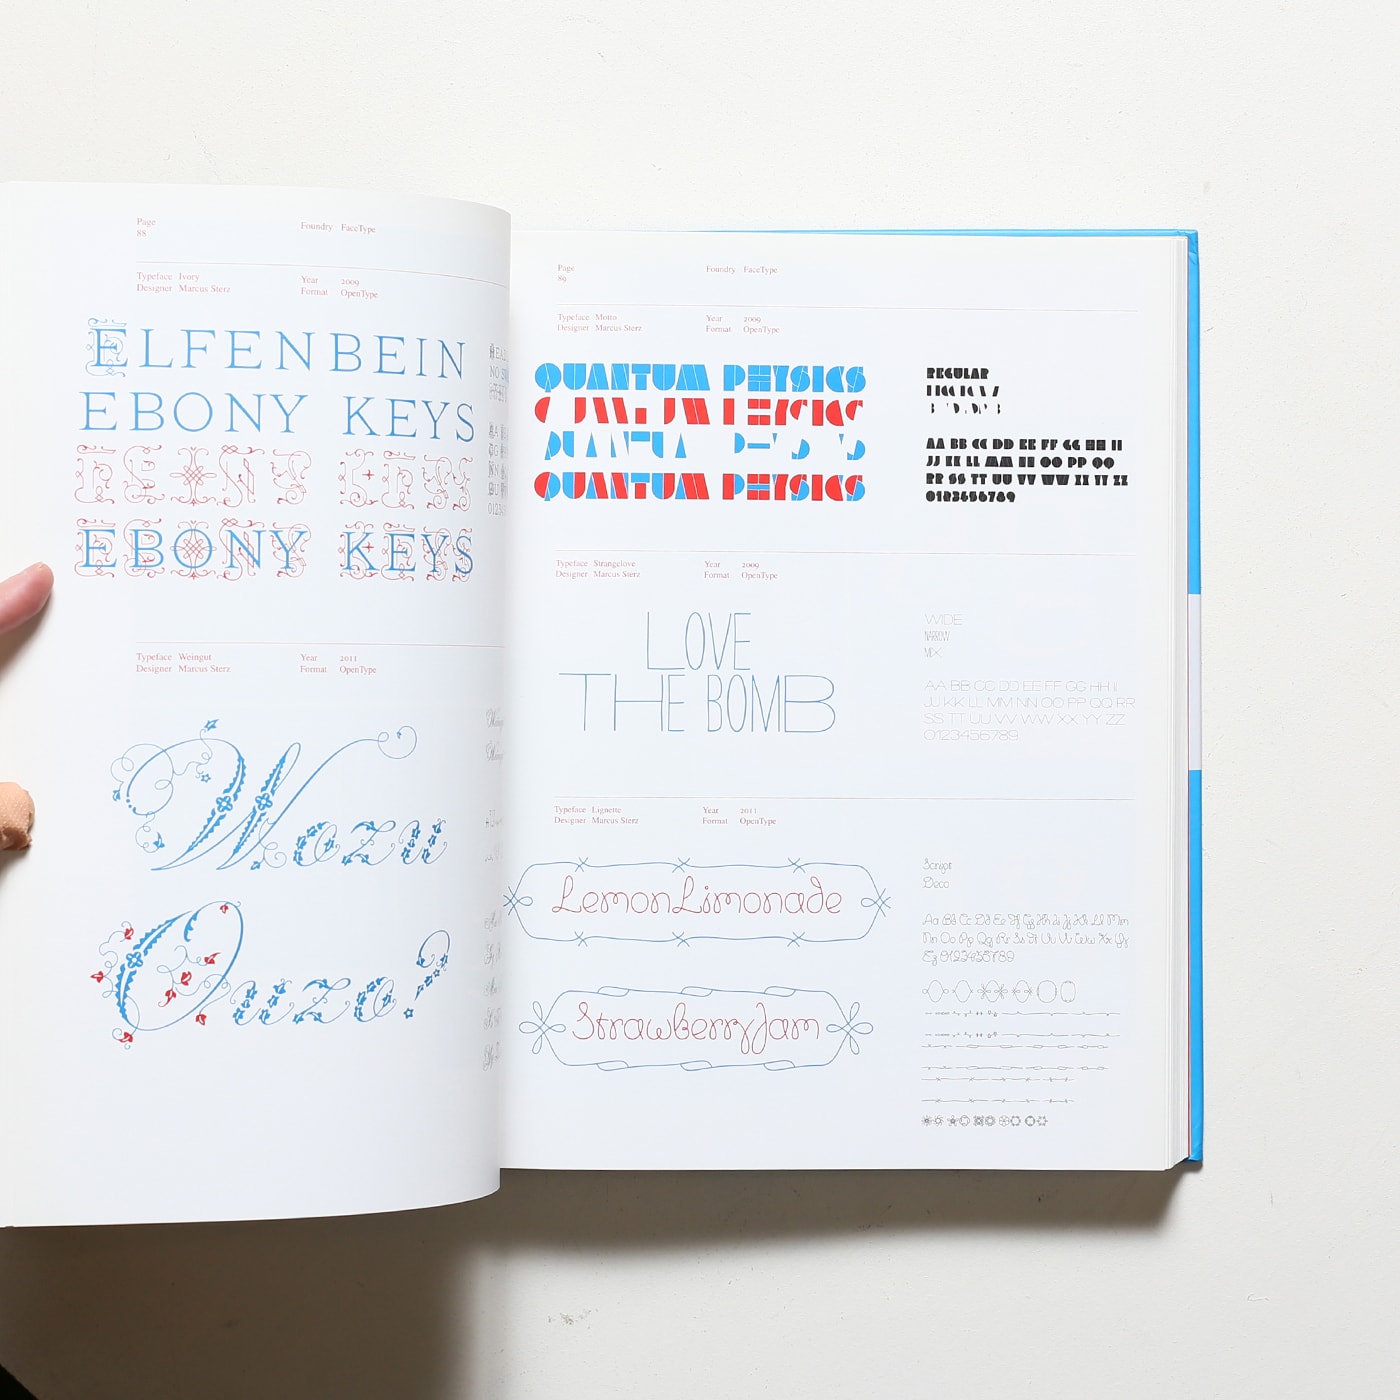 Page
88
Foundry FaceType
Typeface Ivory
Designer Marcus Sterz
Year 2009
Format OpenType
ELFENBEIN
EBONY KEYS
EBONY KEYS
Typeface Weingut
Designer Marcus Sterz
Year 2011
Format OpenType
Wozu
Ouzo?
Page
89
Foundry FaceType
Typeface Motto
Designer Marcus Sterz
Year 2009
Format OpenType
QUANTUM PHYSICS
QUANTUM PHYSICS
REGULAR
AA BB CC DD EE FF GG HH II
JJ KK LL MM NN OO PP QQ
RR SS TT UU VV WW XX YY ZZ
0123456789
Typeface Strangelove
Designer Marcus Sterz
Year 2009
Format OpenType
LOVE
THE BOMB
WIDE
NARROW
MIX
AA BB CC DD EE FF GG HH II
JJ KK LL MM NN OO PP QQ RR
SS TT UU VV WW XX YY ZZ
0123456789
Typeface Lignette
Designer Marcus Sterz
Year 2011
Format OpenType
LemonLimonade
StrawberryJam
Script
Deco
Aa Bb Cc Dd Ee Ff Gg Hh Ii Jj Kk Ll Mm
Nn Oo Pp Qq Rr Ss Tt Uu Vv Ww Xx Yy
Zz 0123456789